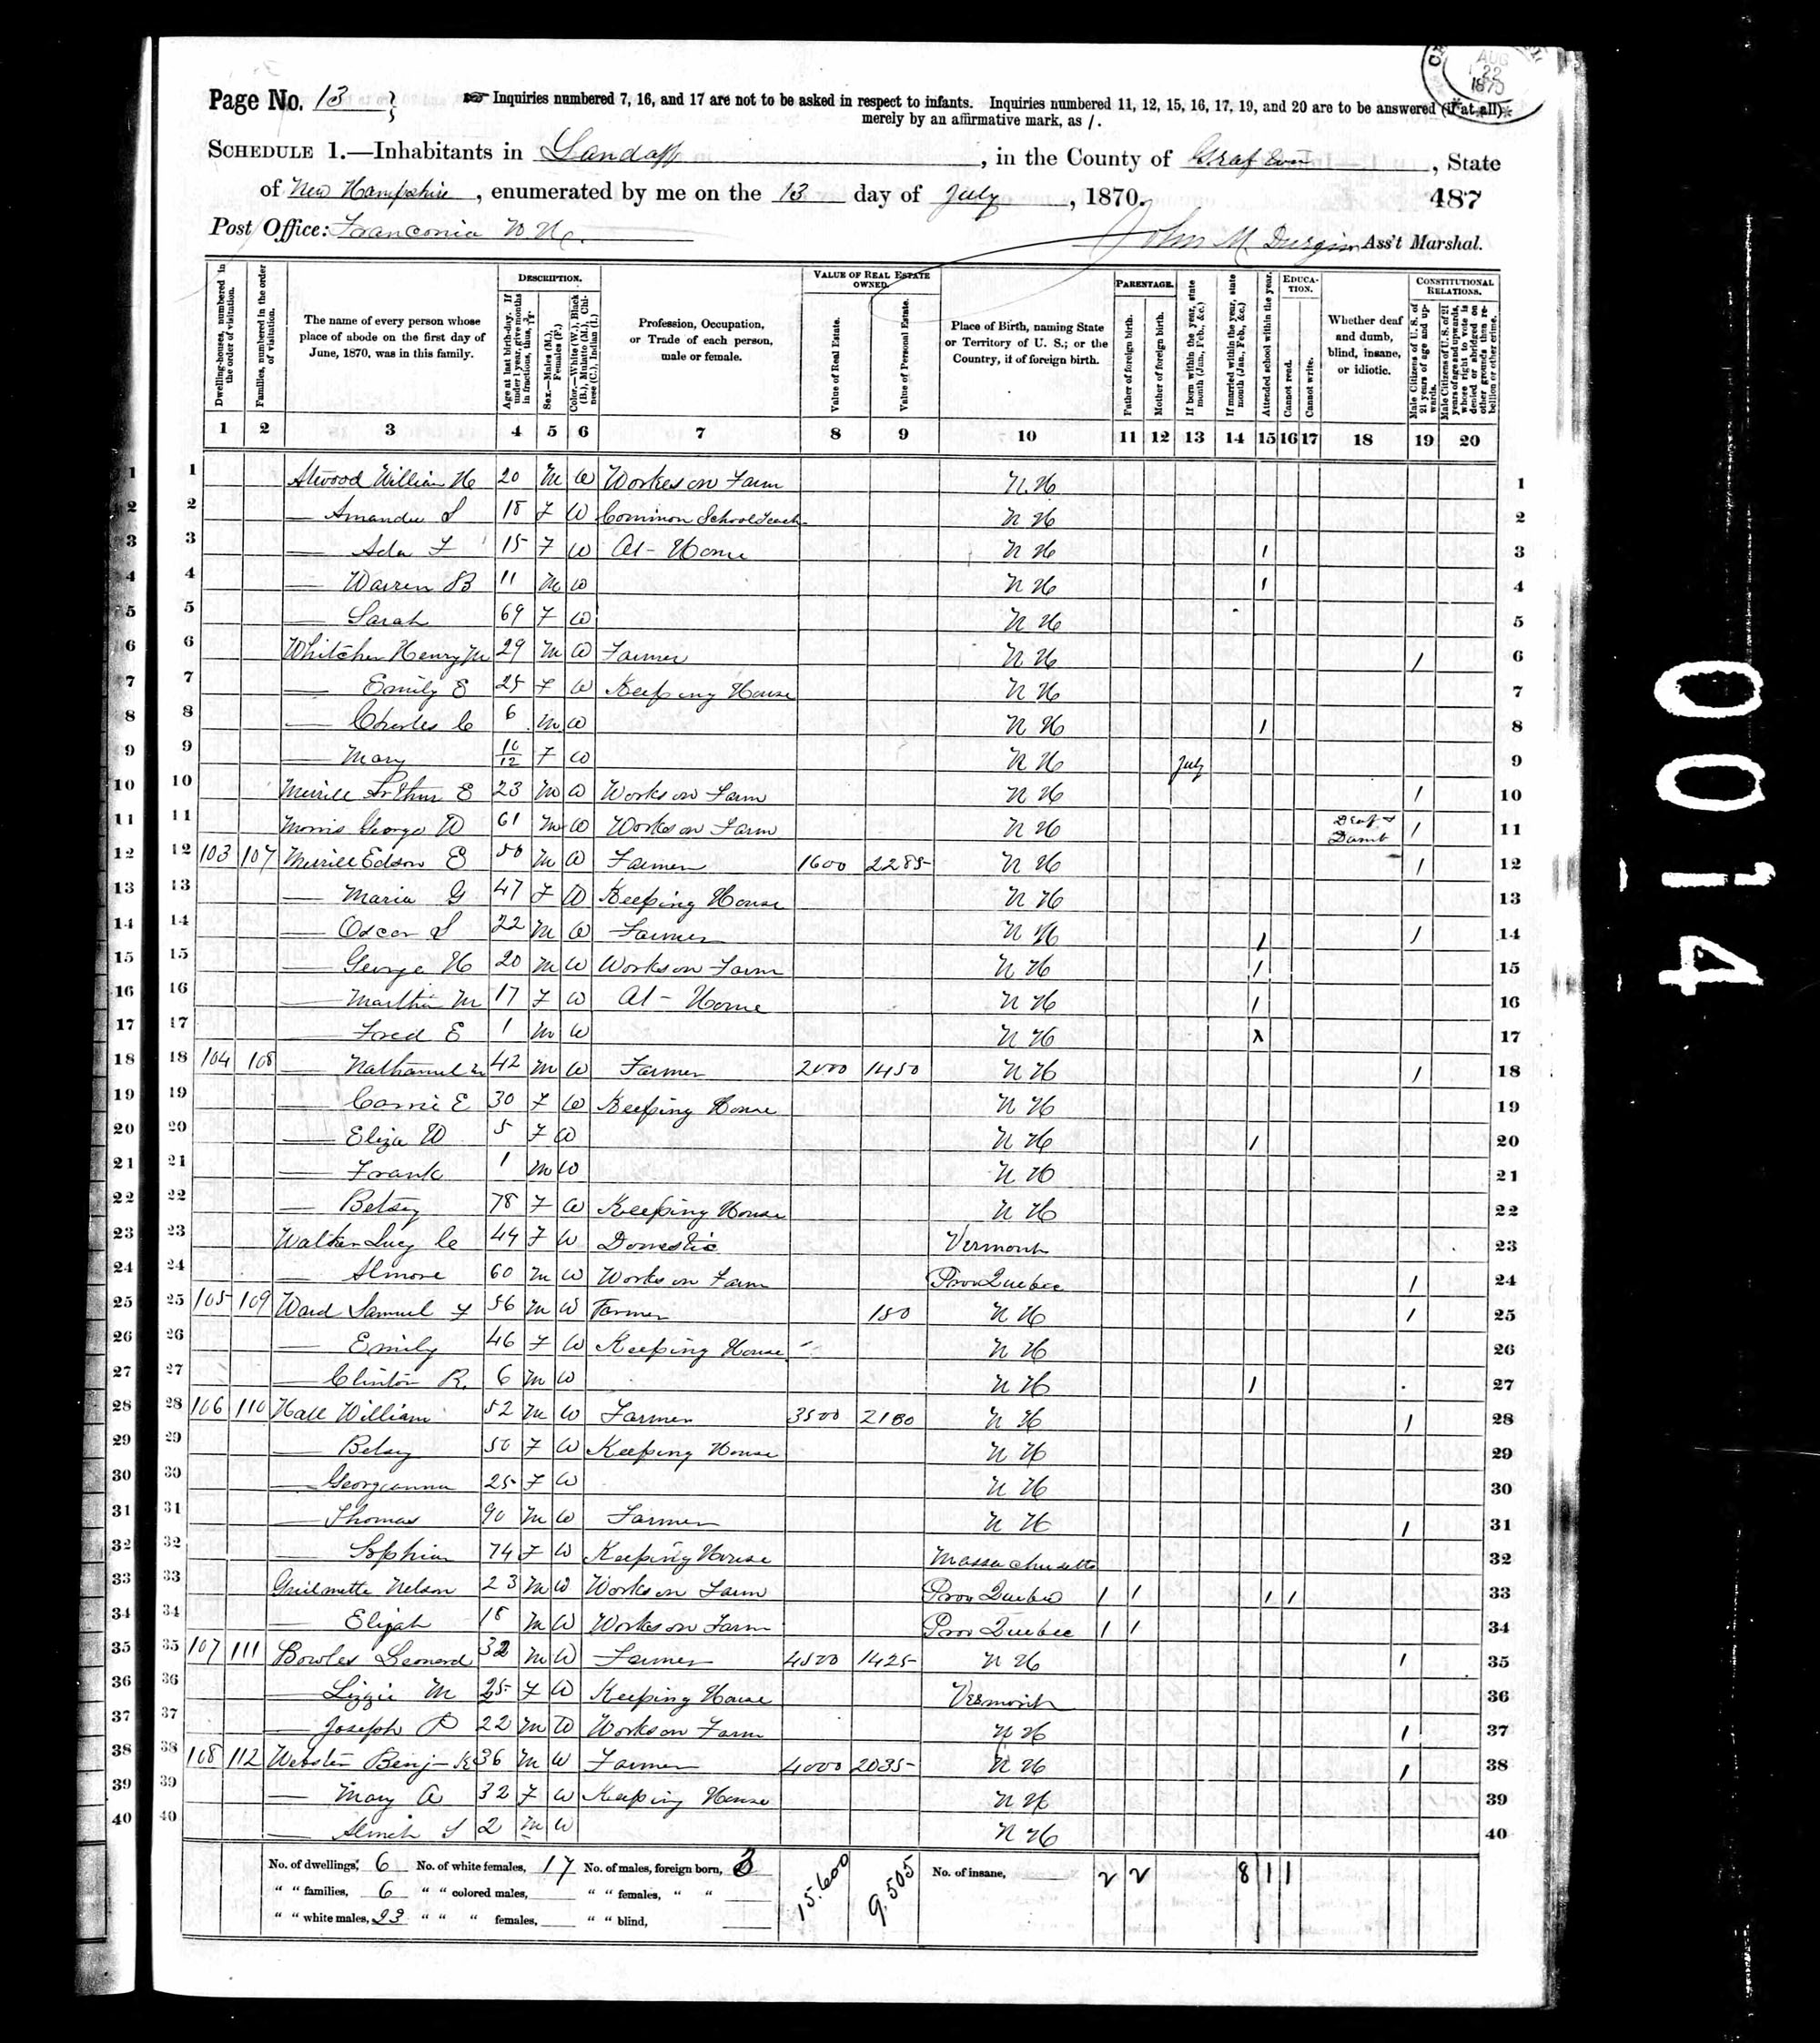 AUG
22
1870
Page No. 13
☞ Inquiries numbered 7, 16, and 17 are not to be asked in respect to infants. Inquiries numbered 11, 12, 15, 16, 17, 19, and 20 are to be answered (if at all)
merely by an affirmative mark, as /.
SCHEDULE 1.—Inhabitants in Landaff, in the County of Grafton, State
of New Hampshire, enumerated by me on the 13 day of July, 1870. 487
Post Office: Franconia N.H. John M Durgin Ass't Marshal.
Dwelling-houses, numbered in the order of visitation.
Families, numbered in the order of visitation.
The name of every person whose place of abode on the first day of June, 1870, was in this family.
DESCRIPTION.
Age at last birth-day. If under 1 year, give months in fractions, thus, 3/12.
Sex.—Males (M.), Females (F.)
Color.—White (W.), Black (B.), Mulatto (M.), Chinese (C.), Indian (I.)
Profession, Occupation, or Trade of each person, male or female.
VALUE OF REAL ESTATE OWNED.
Value of Real Estate.
Value of Personal Estate.
Place of Birth, naming State or Territory of U. S.; or the Country, if of foreign birth.
PARENTAGE.
Father of foreign birth.
Mother of foreign birth.
If born within the year, state month (Jan., Feb., &c.)
If married within the year, state month (Jan., Feb., &c.)
Attended school within the year.
EDUCATION.
Cannot read.
Cannot write.
Whether deaf and dumb, blind, insane, or idiotic.
CONSTITUTIONAL RELATIONS.
Male Citizens of U. S. of 21 years of age and upwards.
Male Citizens of U. S. of 21 years of age and upwards, whose right to vote is denied or abridged on other grounds than rebellion or other crime.
1 2 3 4 5 6 7 8 9 10 11 12 13 14 15 16 17 18 19 20
1 Atwood William H 20 M W Works on Farm N.H 1
2 — Amanda S 18 F W Common School Teach N H 2
3 — Ada F 15 F W At-Home N H / 3
4 — Warren B 11 M W N H / 4
5 — Sarah 69 F W N H 5
6 Whitcher Henry M 29 M W Farmer N H / 6
7 — Emily E 25 F W Keeping House N H 7
8 — Charles C 6 M W N H / 8
9 — Mary 10/12 F W N H July 9
10 Merrill Arthur E 23 M W Works on Farm N H / 10
11 Morris George W 61 M W Works on Farm N H Deaf & Dumb / 11
12 103 107 Merrill Edson E 50 M W Farmer 1600 2285 N H / 12
13 — Maria G 47 F W Keeping House N H 13
14 — Oscar S 22 M W Farmer N H / / 14
15 — George H 20 M W Works on Farm N H / 15
16 — Martha M 17 F W At-Home N H / 16
17 — Fred E 1 M W N H 17
18 104 108 — Nathaniel 42 M W Farmer 2000 1450 N H / 18
19 — Carrie E 30 F W Keeping House N H 19
20 — Eliza W 5 F W N H / 20
21 — Frank 1 M W N H 21
22 — Betsey 78 F W Keeping House N H 22
23 Walker Lucy C 44 F W Domestic Vermont 23
24 — Almore 60 M W Works on Farm Prov Quebec / 24
25 105 109 Ward Samuel F 56 M W Farmer 150 N H / 25
26 — Emily 46 F W Keeping House N H 26
27 — Clinton R. 6 M W N H / 27
28 106 110 Hall William 52 M W Farmer 3500 2180 N H / 28
29 — Betsy 50 F W Keeping House N H 29
30 — Georgianna 25 F W N H 30
31 — Thomas 90 M W Farmer N H / 31
32 — Sophia 74 F W Keeping House Massachusetts 32
33 Nelson 23 M W Works on Farm Prov Quebec / / / / 33
34 — Elijah 18 M W Works on Farm Prov Quebec / / 34
35 107 111 Bowles Leonard 32 M W Farmer 4500 1425 N H / 35
36 — Lizzie M 25 F W Keeping House Vermont 36
37 — Joseph 22 M W Works on Farm N H / 37
38 108 112 Webster Benj 36 M W Farmer 4000 2035 N H / 38
39 — Mary A 32 F W Keeping House N H 39
40 2 M W N H 40
No. of dwellings, 6 No. of white females, 17 No. of males, foreign born, 3 15.600 9.505 No. of insane, 2 2 8 1 1
" " families, 6 " " colored males, " " females, " "
" " white males, 23 " " " females, " " blind,
0014